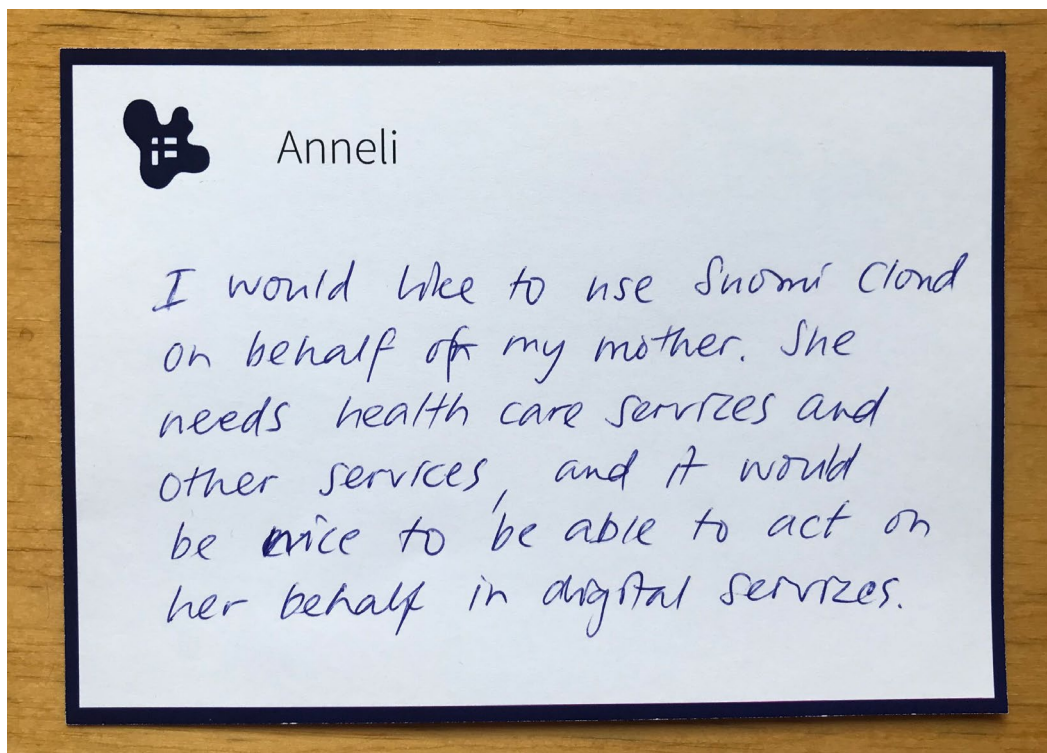 Anneli
I would like to use Suomi Cloud
on behalf of my mother. She
needs health care services and
other services, and it would
be nice to be able to act on
her behalf in digital services.